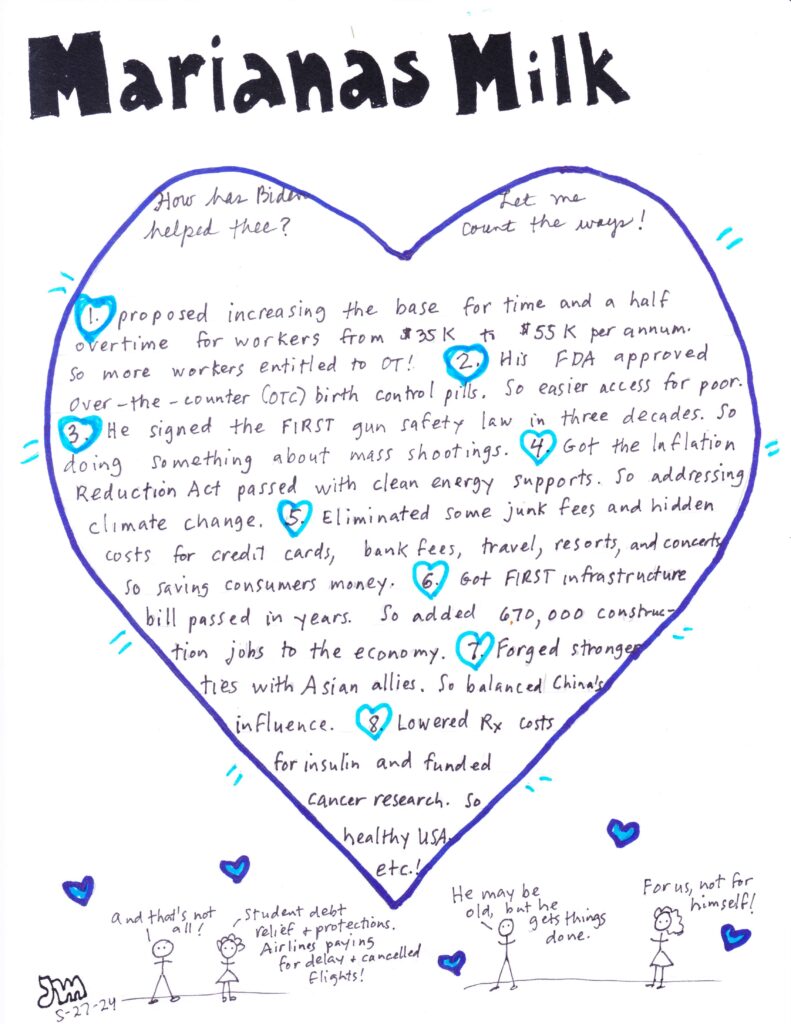 Marianas Milk
How has Biden
helped thee?
Let me
count the ways!
1. proposed increasing the base for time and a half
overtime for workers from $35K to $55K per annum.
So more workers entitled to OT! 2. His FDA approved
over-the-counter (OTC) birth control pills. So easier access for poor.
3. He signed the FIRST gun safety law in three decades. So
doing something about mass shootings. 4. Got the Inflation
Reduction Act passed with clean energy supports. So addressing
climate change. 5. Eliminated some junk fees and hidden
costs for credit cards, bank fees, travel, resorts, and concerts
so saving consumers money. 6. Got FIRST infrastructure
bill passed in years. So added 670,000 construc-
tion jobs to the economy. 7. Forged stronger
ties with Asian allies. So balanced China's
influence. 8. Lowered Rx costs
for insulin and funded
cancer research. So
healthy USA.
etc.!
and that's not
all!
Student debt
relief + protections.
Airlines paying
for delay + cancelled
flights!
He may be
old, but he
gets things
done.
For us, not for
himself!
JM
5-27-24